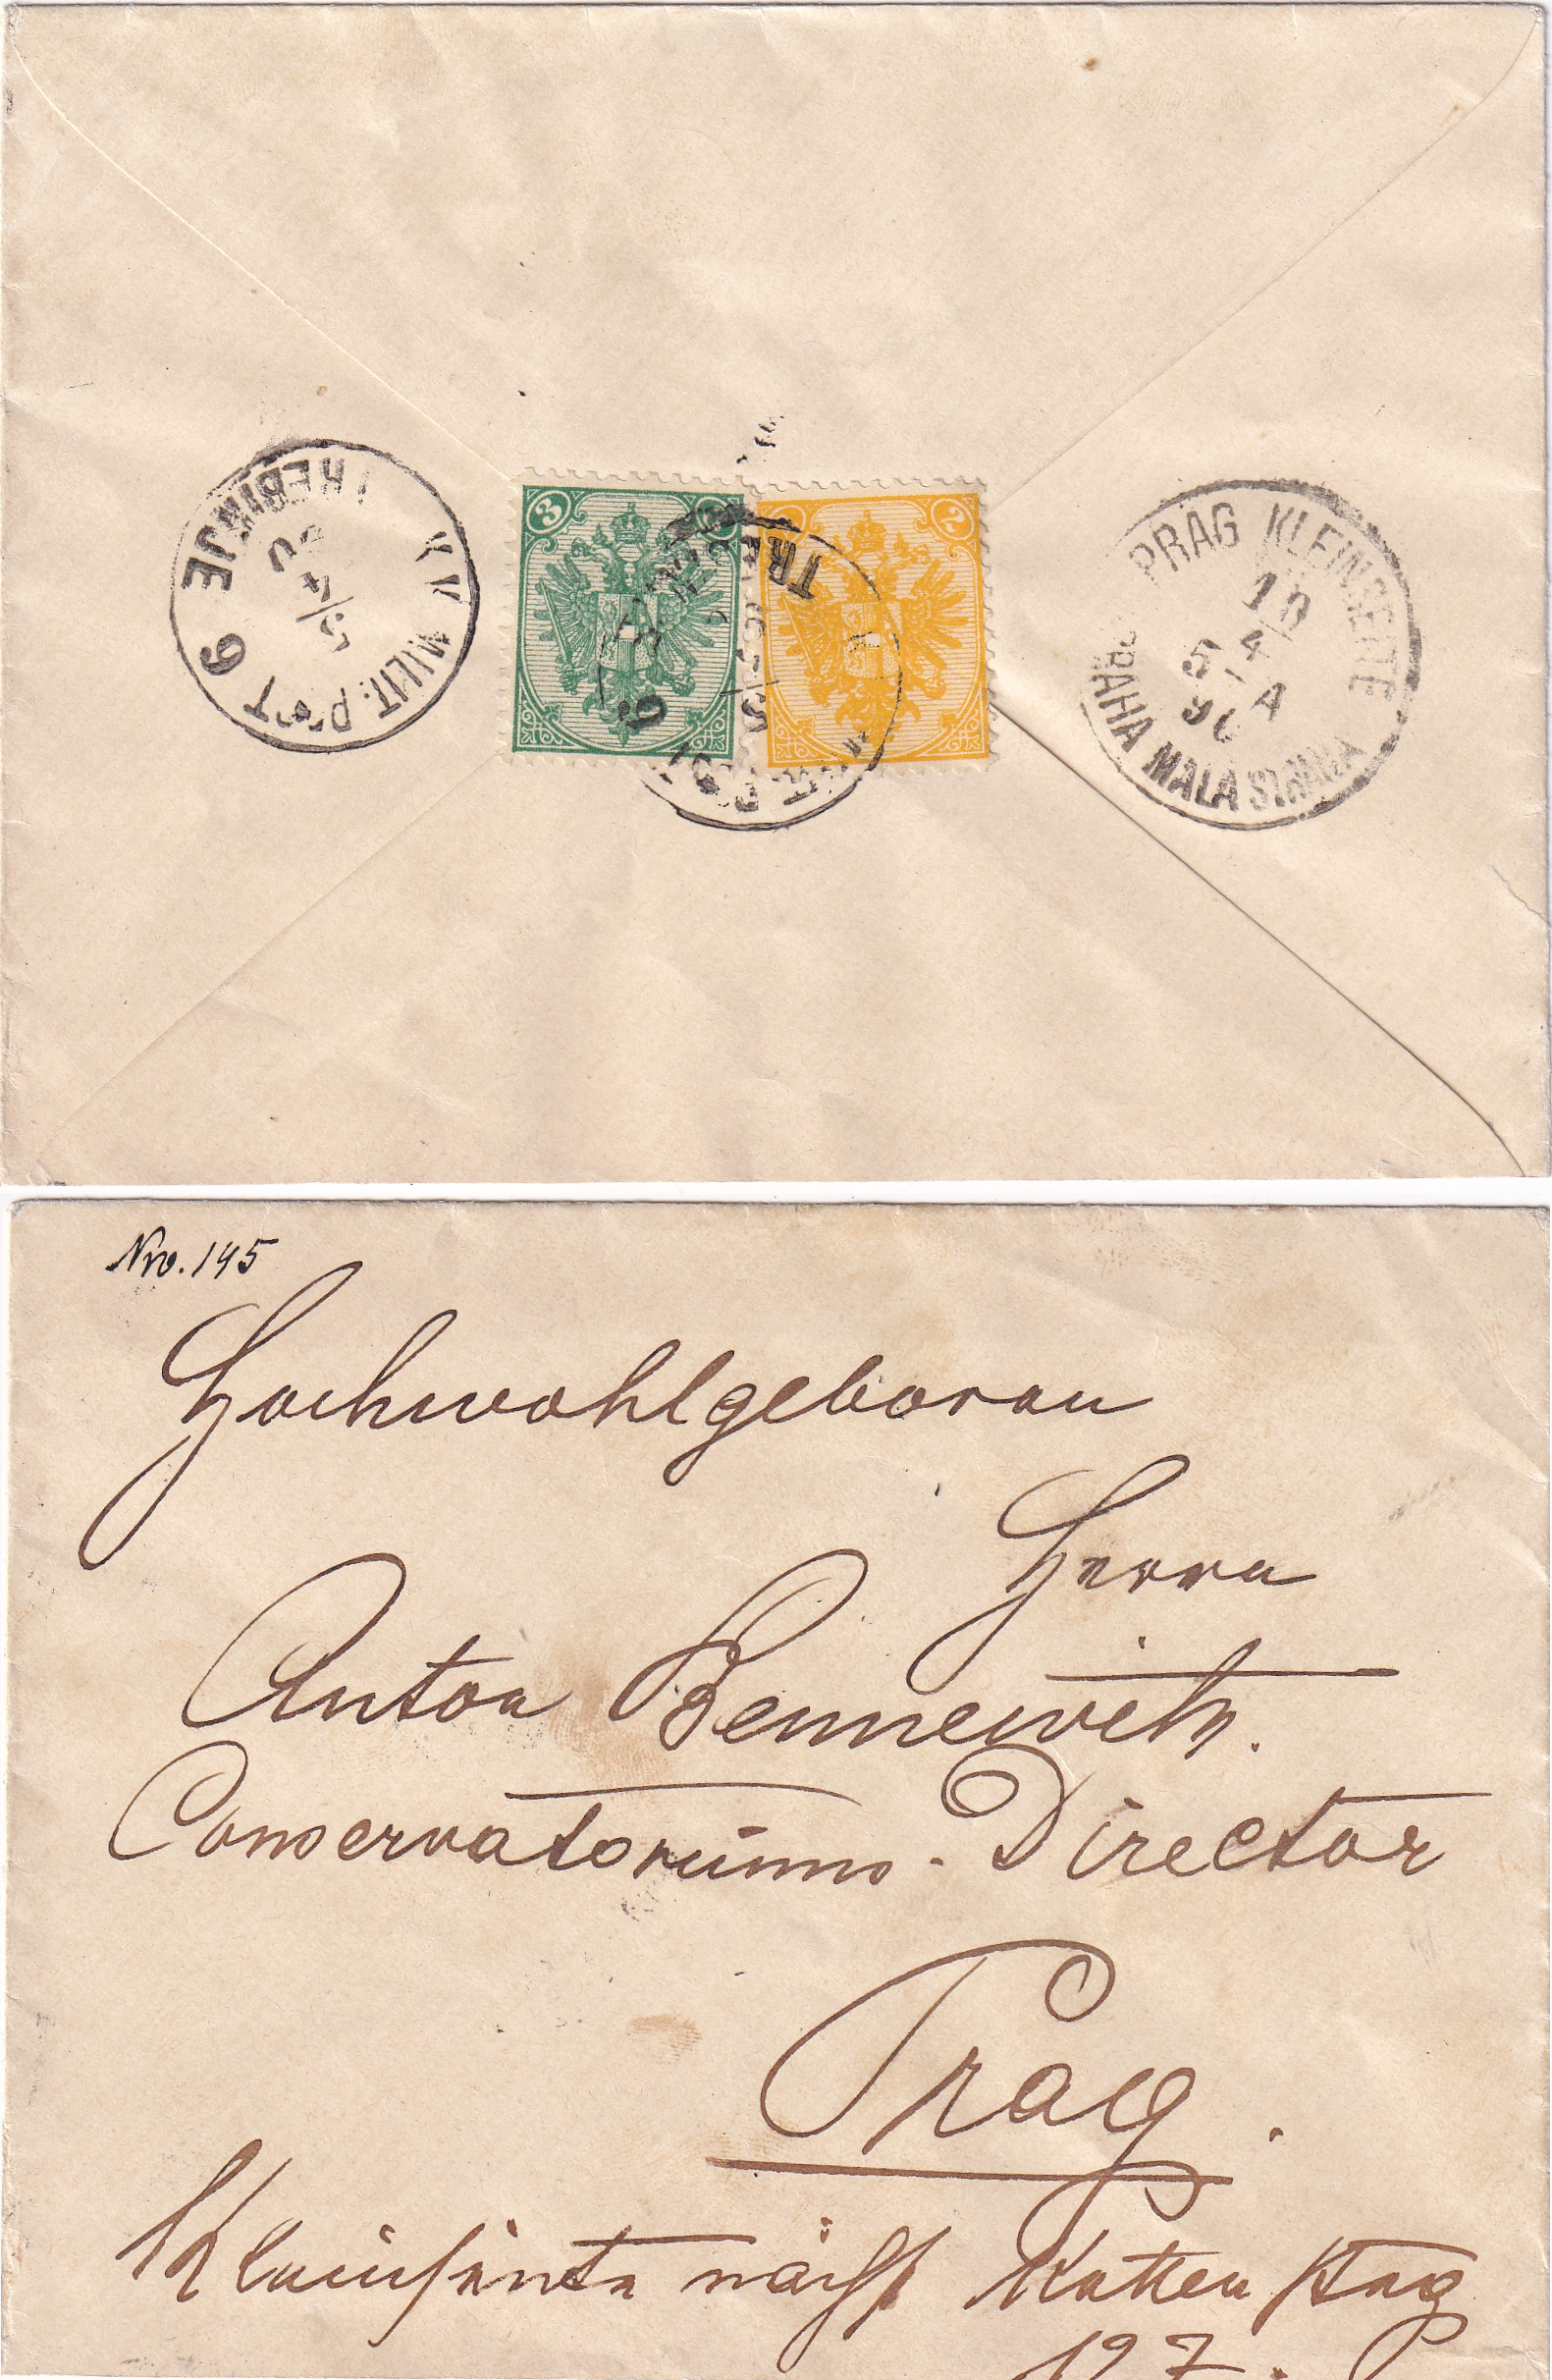 TREBINJE
5/4
MILIT: POST
6
3
2
TR
6
PRAG KLEINSEITE
10
4
5 A
90
PRAHA MALA STRANA
Nro. 145
Hochwohlgeboren
Herrn
Anton Bennewitz.
Conservatoriums-Director
Prag.
Kleinseite nächst Kettensteg
197.